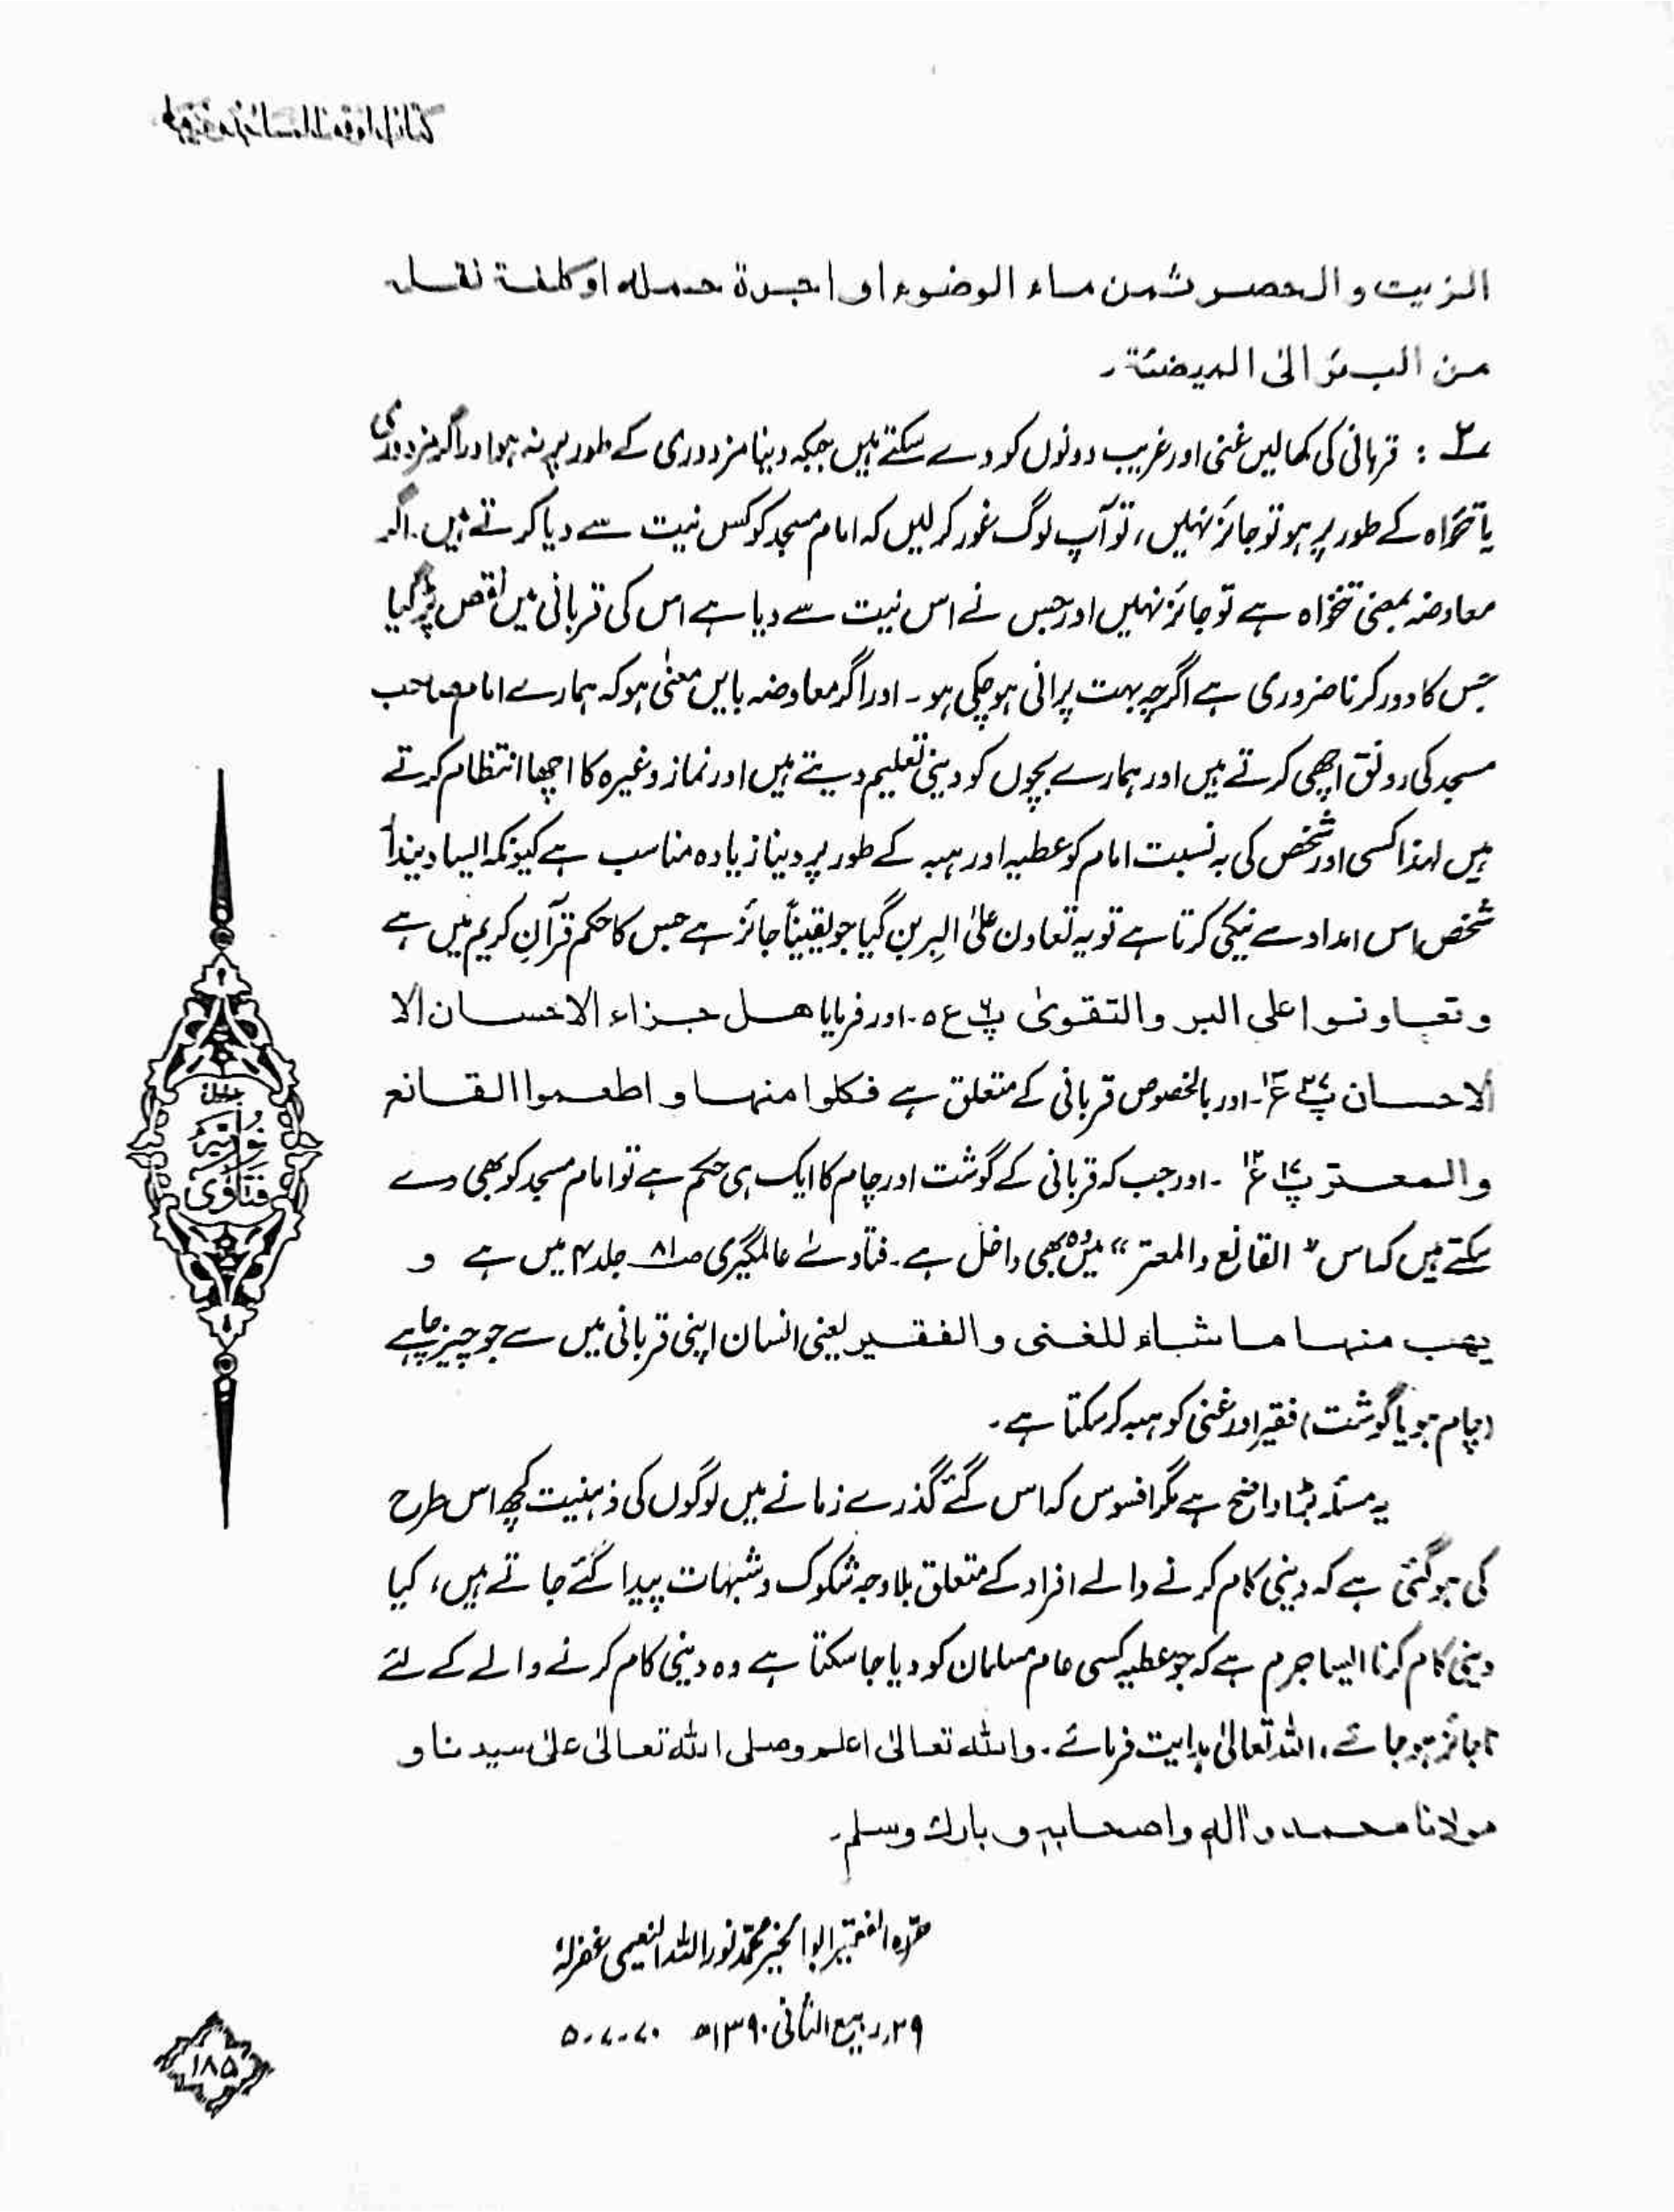 الزيت و الحصر ثمن ماء الوضوء او اجرة حمله او كلفة نقله
من البئر الى الميضئة۔
۲ : قربانی کی کھالیں غنی اور غریب دونوں کو دے سکتے ہیں جبکہ دینا مزدوری کے طور پر نہ ہو اور اگر مزدوری
یا تنخواہ کے طور پر ہو تو جائز نہیں، تو آپ لوگ غور کر لیں کہ امام مسجد کو کس نیت سے دیا کرتے ہیں۔ اگر
معاوضہ بمعنی تنخواہ ہے تو جائز نہیں اور جس نے اس نیت سے دیا ہے اس کی قربانی میں نقص پڑ گیا
جس کا دور کرنا ضروری ہے اگرچہ بہت پرانی ہو چکی ہو۔ اور اگر معاوضہ بایں معنٰی ہو کہ ہمارے امام صاحب
مسجد کی رونق اچھی کرتے ہیں اور ہمارے بچوں کو دینی تعلیم دیتے ہیں اور نماز وغیرہ کا اچھا انتظام کرتے
ہیں لہذا کسی اور شخص کی بہ نسبت امام کو عطیہ اور ہبہ کے طور پر دینا زیادہ مناسب ہے کیونکہ ایسا دیندار
شخص اس امداد سے نیکی کرتا ہے تو یہ تعاون علیٰ البِر بن گیا جو یقیناً جائز ہے جس کا حکم قرآنِ کریم میں ہے
و تعاونوا على البر والتقوىٰ پ۶ ع ۵۔ اور فرمایا هل جزاء الاحسان الا
الاحسان پ۲۷ ع۱۳۔ اور بالخصوص قربانی کے متعلق ہے فكلوا منها و اطعموا القانع
والمعتر پ۱۷ ع۱۲ ۔ اور جب کہ قربانی کے گوشت اور چام کا ایک ہی حکم ہے تو امام مسجد کو بھی دے
سکتے ہیں کہ اس "القانع والمعتر" میں وہ بھی داخل ہے۔ فتاوےٰ عالمگیری صـ۸۱ جلد ۴ میں ہے و
يهب منها ما شاء للغنى والفقير یعنی انسان اپنی قربانی میں سے جو چیز چاہے
(چام ہو یا گوشت) فقیر اور غنی کو ہبہ کر سکتا ہے۔
یہ مسئلہ بڑا واضح ہے مگر افسوس کہ اس گئے گذرے زمانے میں لوگوں کی ذہنیت کچھ اس طرح
کی ہو گئی ہے کہ دینی کام کرنے والے افراد کے متعلق بلا وجہ شکوک و شبہات پیدا کئے جاتے ہیں، کیا
دینی کام کرنا ایسا جرم ہے کہ جو عطیہ کسی عام مسلمان کو دیا جا سکتا ہے وہ دینی کام کرنے والے کے لئے
ناجائز ہو جائے، اللہ تعالیٰ ہدایت فرمائے۔ والله تعالىٰ اعلم وصلى الله تعالىٰ علىٰ سيدنا و
مولانا محمد و اٰله و اصحابه و بارك وسلم۔
حررہ الفقیر ابو الخیر محمد نور اللہ النعیمی غفرلہٗ
۲۹؍ ربیع الثانی ۱۳۹۰ھ ۷۰-۷-۵
فتاوٰی
نوریہ
۱۸۵